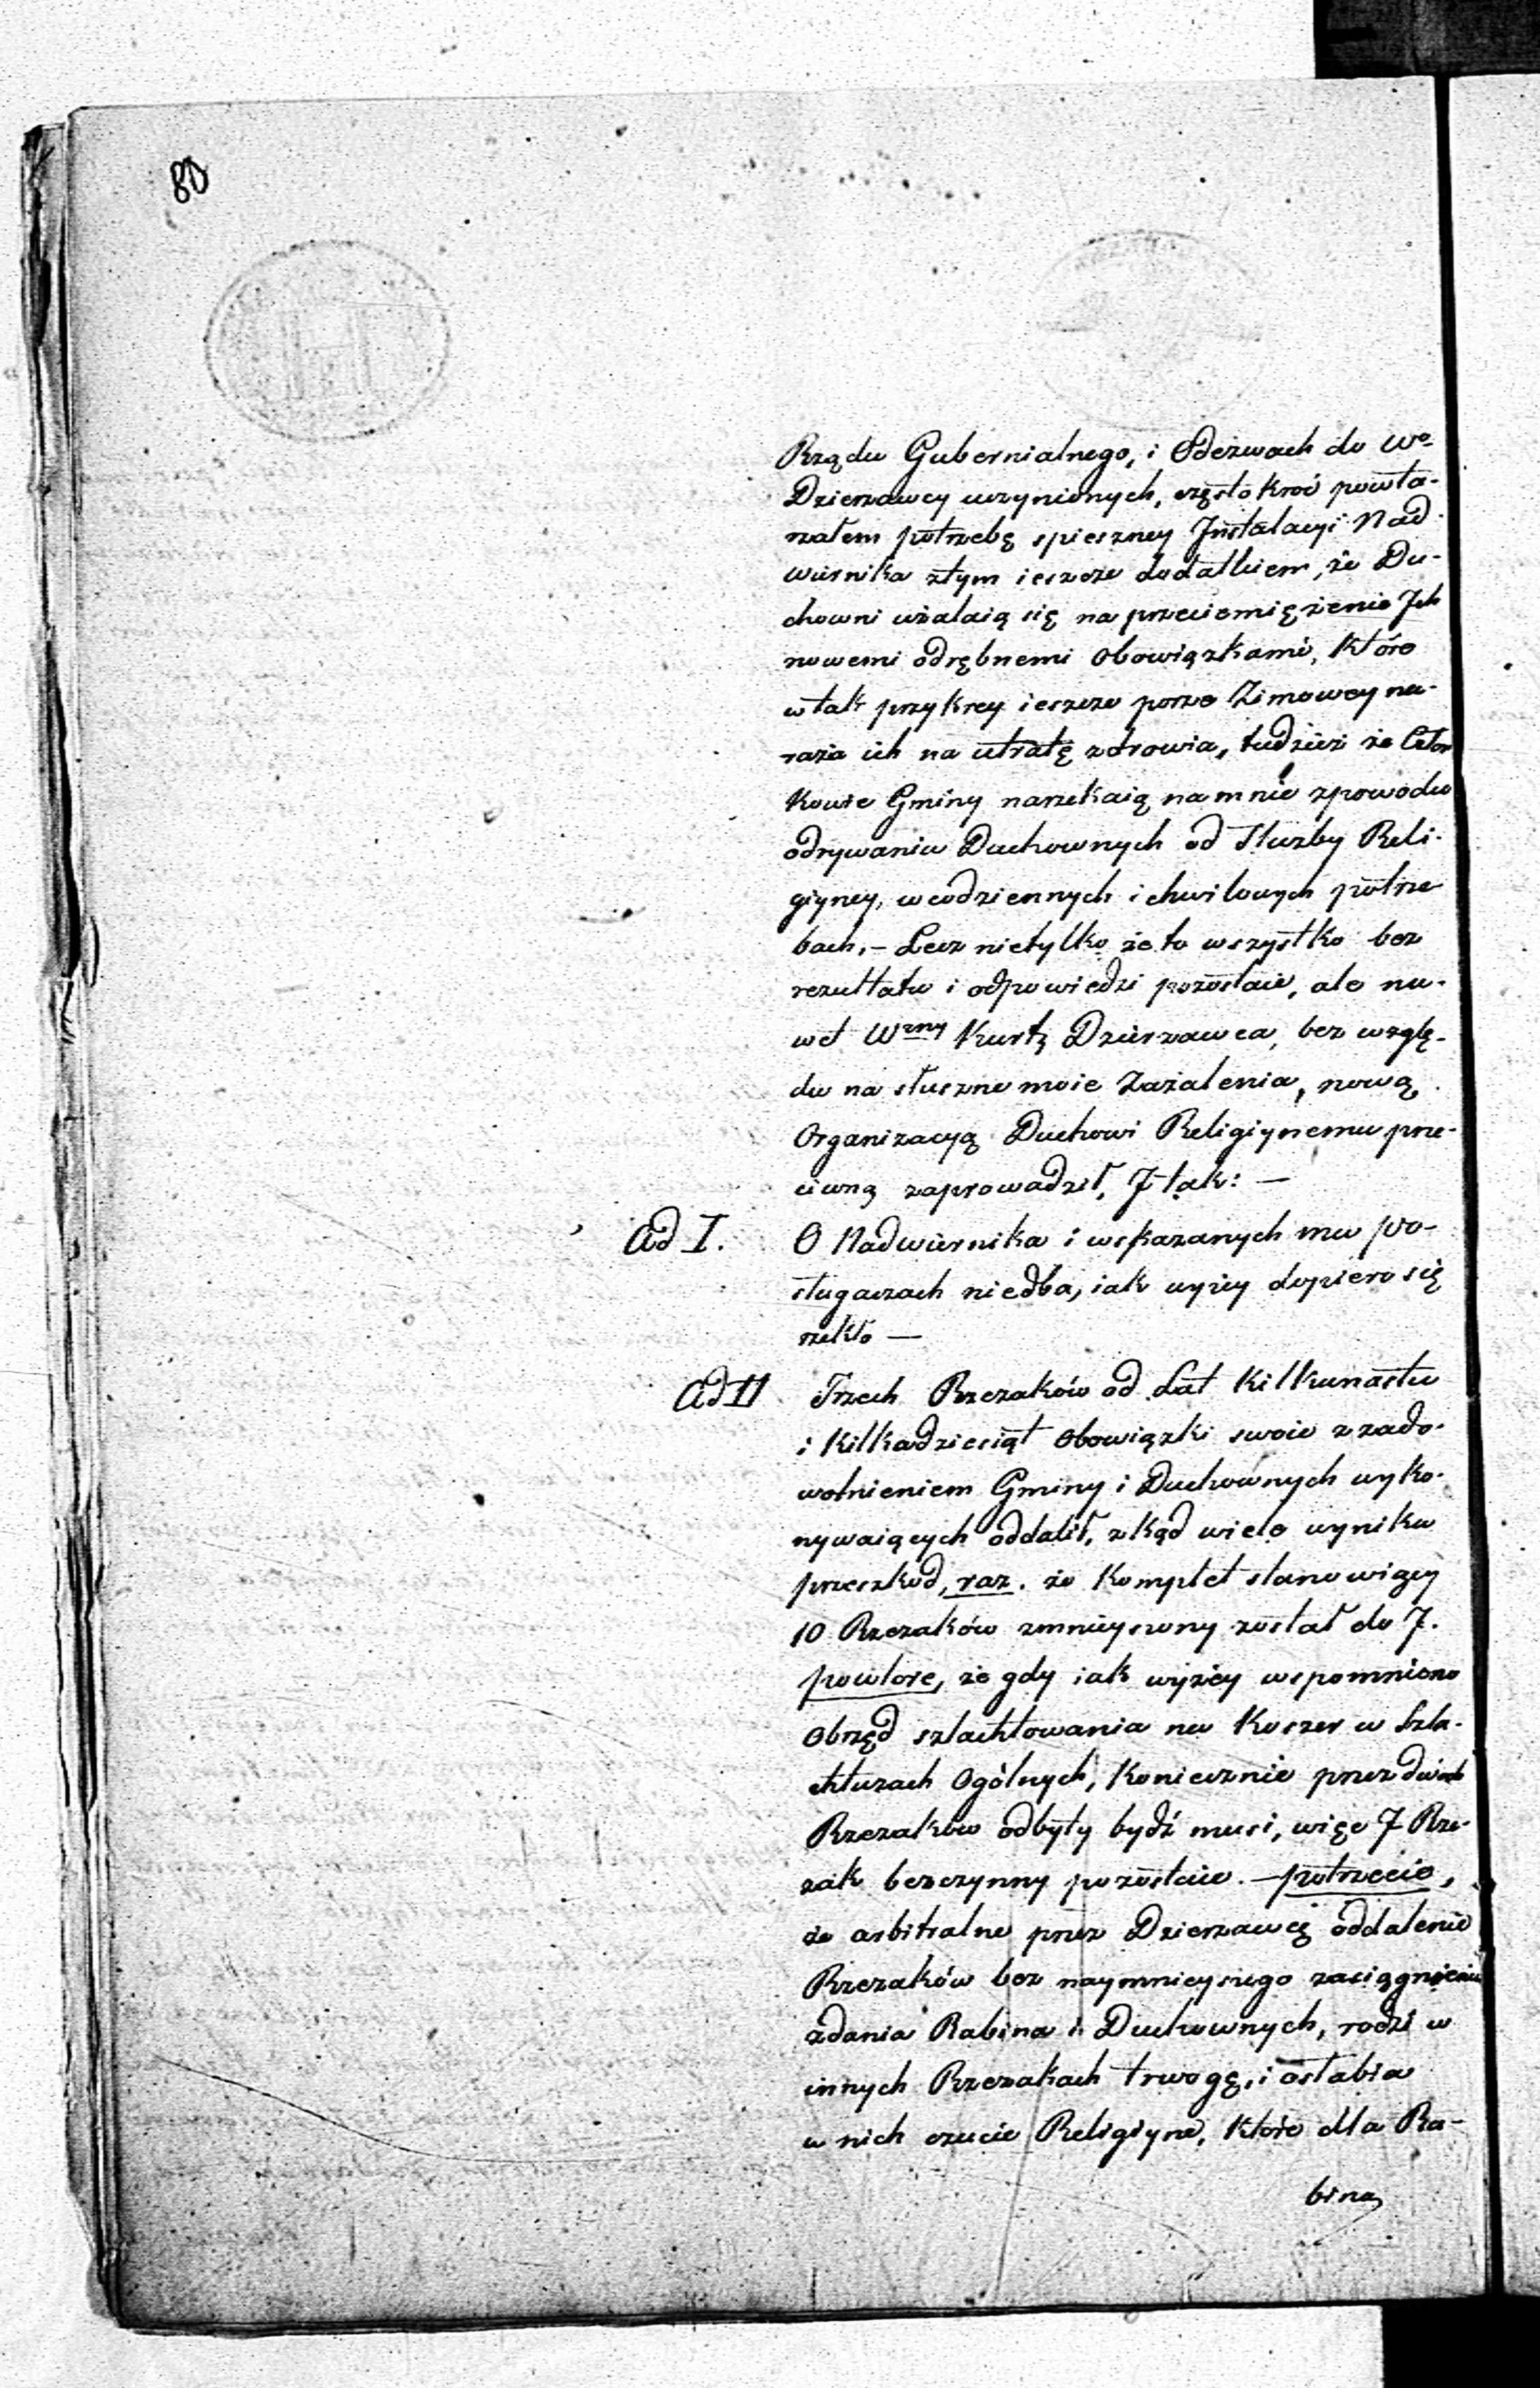 80
Rządu Gubernialnego, i Odezwach do Wo
Dzierzawcy uczynionych, częstokroć powta-
rzałem potrzebę spieszney Instalacyi Nad-
wiernika ztym ieszcze dodatkiem, że Du-
chowni użalaią się na przeciemiężenie Ich
nowemi odrębnemi obowiązkami, które
w tak przykrey ieszcze porze Zimowey na-
raża ich na utratę zdrowia, tudzież że Człon
kowie Gminy narzekaią na mnie zpowodu
odrywania Duchownych od Służby Reli-
giyney, w codziennych i chwilowych potrze
bach, – Lecz nietylko że to wszystko bez
rezultatu i odpowiedzi pozostaie, ale na-
wet Wzny Kurtz Dzierzawca, bez wzglę-
du na słuszne moie Zażalenia, nową
Organizacyą Duchowi Religiynemu prze-
ciwną zaprowadził, I tak: —
Ad I. O Nadwiernika i wskazanych mu po-
sługaczach niedba, iak wyżey dopiero się
rzekło —
Ad II Trzech Rzezaków od Lat kilkunastu
i kilkadziesiąt obowiązki swoie z zado-
wolnieniem Gminy i Duchownych wyko-
nywaiących oddalił, zkąd wiele wynika
przeszkod, raz. że Komplet stanowiący
10 Rzezaków zmnieyszony został do 7.
powtore, że gdy iak wyżey wspomniono
Obrzęd szlachtowania na Koszer w Szla-
chtuzach Ogólnych, koniecznie przez dwóch
Rzezaków odbyty bydź musi, więc 7 Rze-
zak bezczynny pozostaie. – potrzecie,
że arbitralne przez Dzierzawcę oddalenie
Rzezaków bez naymnieyszego zaciągnienia
zdania Rabina i Duchownych, rodzi w
innych Rzezakach trwogę, i osłabia
w nich czucie Religiyne, które dla Ra-
bina